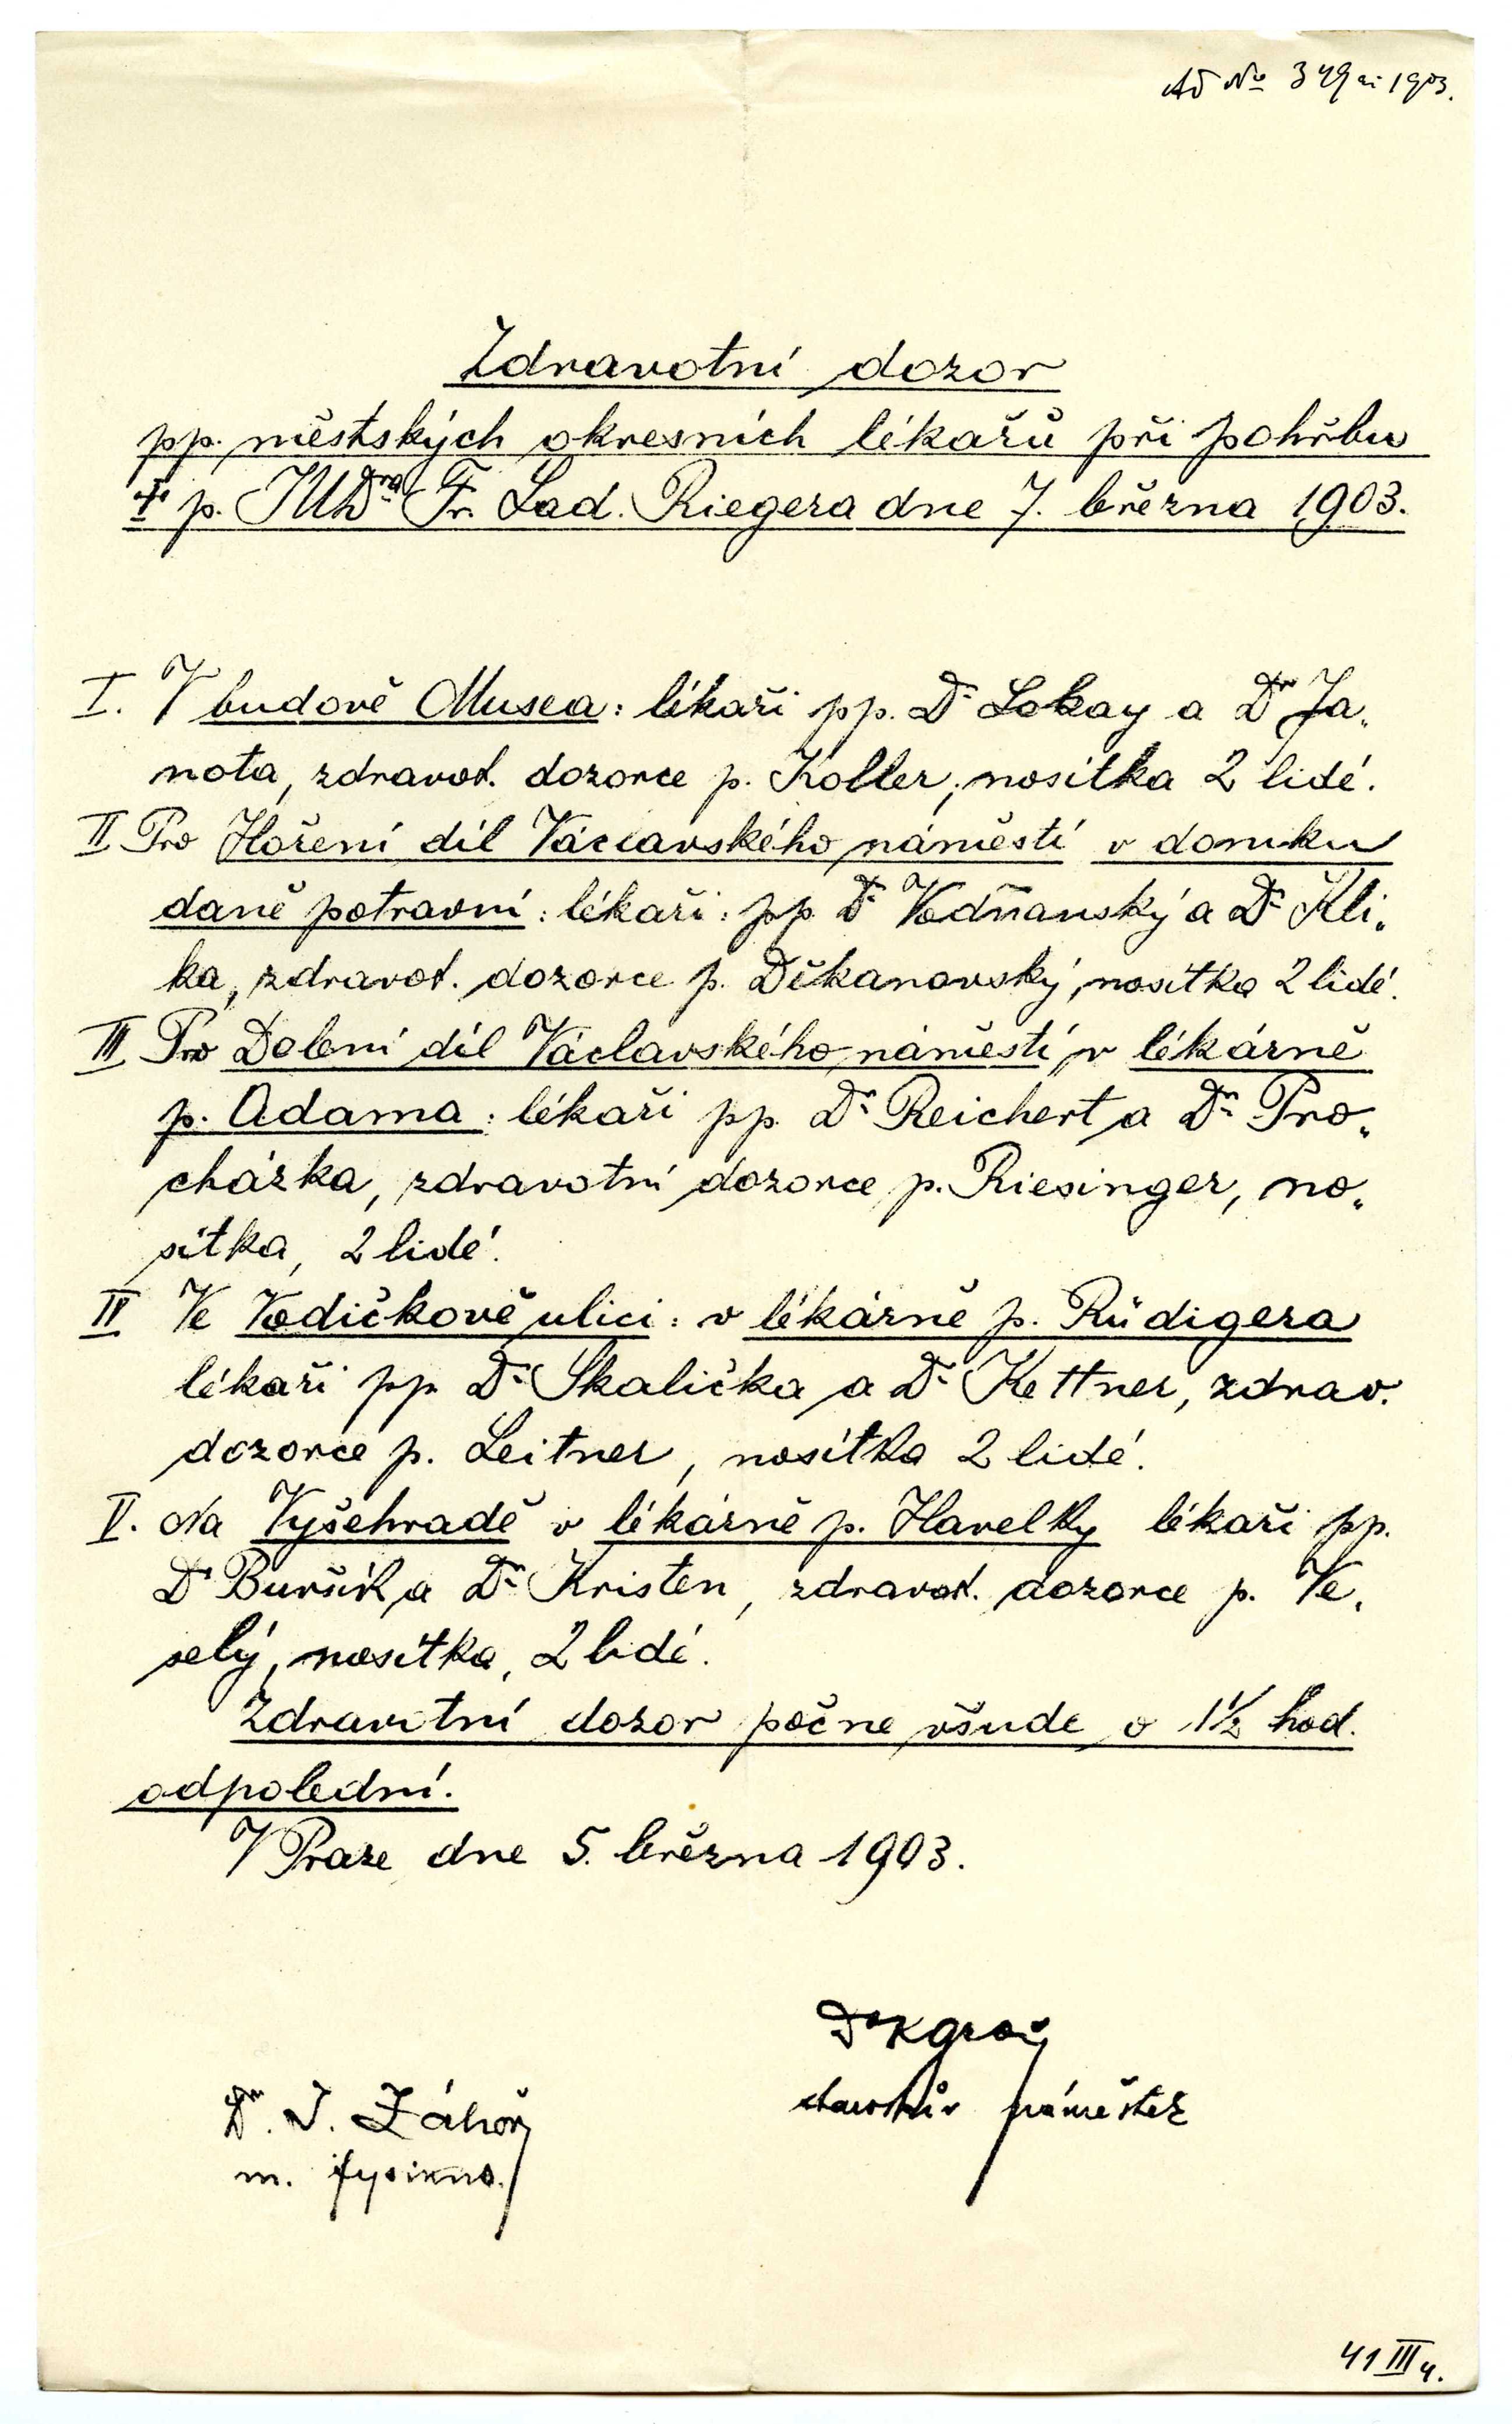 Ad No 349 ai 1903.
Zdravotní dozor
pp. městských okresních lékařů při pohřbu
† p. JUDra Fr. Lad. Riegera dne 7. března 1903.
I. V budově Musea: lékaři pp. Dr Lokay a Dr Ja„
nota, zdravot. dozorce p. Koller, nosítka 2 lidé.
II. Pro Hoření díl Václavského náměstí v domku
daně potravní: lékaři: pp. Dr Vodňanský a Dr Kli„
ka, zdravot. dozorce p. Děkanovský, nosítka 2 lidé.
III. Pro Dolení díl Václavského náměstí v lékárně
p. Adama: lékaři pp. Dr Reichert a Dr Pro„
cházka, zdravotní dozorce p. Riesinger, no„
sítka, 2 lidé.
IV Ve Vodičkově ulici: v lékárně p. Rüdigera
lékaři pp. Dr Skalička a Dr Kettner, zdrav.
dozorce p. Leitner, nosítka 2 lidé.
V. Na Vyšehradě v lékárně p. Havelky lékaři pp.
Dr Buršík a Dr Kristen, zdravot. dozorce p. Ve„
selý, nosítka, 2 lidé.
Zdravotní dozor počne všude o 1½ hod.
odpolední.
V Praze dne 5. března 1903.
Dr K Groš
starostův náměstek
Dr. J. Záhoř
m. fysikus.
41 III 4.